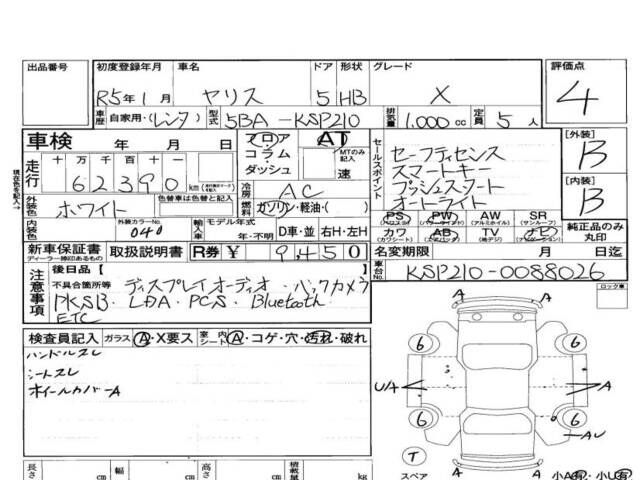 出品番号 初度登録年月 車名 ドア 形状 グレード 評価点
R5年1月 ヤリス 5 HB X 4
車歴 自家用・(レンタ) 型式 5BA-KSP210 排気量 1,000cc 定員 5人
車検 年 月 日 フロア・コラム・ダッシュ AT MTのみ記入 速
セールスポイント
セーフティセンス
スマートキー
プッシュスタート
オートライト
[外装] B
[内装] B
現在色を記入→
走行 十 万 千 百 十
62390 km
冷房 AC
外装色 ホワイト 色替車は色替前に記入 燃料 ガソリン・軽油・( )
PS PW AW SR
(パワステ) (パワーウインド) (アルミホイル) (サンルーフ)
カワ AB TV ナビ
(カワシート) (エアバッグ) (地デジ)
純正品のみ丸印
内装色 外装カラーNo. 040 輸入車 モデル年式 年・不明 D車・並 右H・左H
新車保証書 取扱説明書 R券 ¥ 9,450 名変期限 月 日迄
ディーラー捺印あるもの
車台No. KSP210-0088026
注意事項 後日品 [ ]
不具合箇所等 ディスプレイオーディオ・バックカメラ
PKSB・LDA・PCS・Bluetooth
ETC
ロック車
検査員記入 ガラス A・X要ス 室内 シート A・コゲ・穴・汚れ・破れ
ハンドルスレ
シートスレ
ホイールカバーA
A A
6 6
U/A A
6 6
AU
T
スペア A 小A有 小U有
長さ cm 幅 cm 高さ cm 積載量 kg